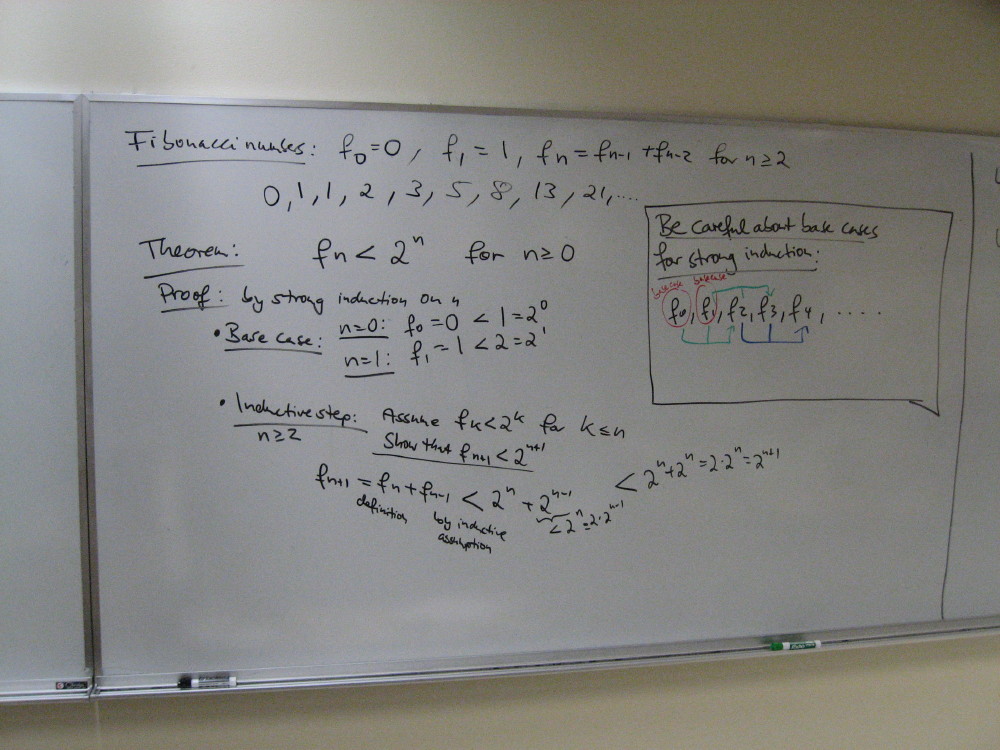 Fibonacci numbers: f₀=0, f₁=1, fₙ=fₙ₋₁+fₙ₋₂ for n≥2
0,1,1,2,3,5,8,13,21,....
Theorem: fₙ<2ⁿ for n≥0
Proof: by strong induction on n
• Base case: n=0: f₀=0<1=2⁰
n=1: f₁=1<2=2¹
• Inductive step: Assume fₖ<2ᵏ for k≤n
n≥2 Show that fₙ₊₁<2ⁿ⁺¹
fₙ₊₁=fₙ+fₙ₋₁<2ⁿ+2ⁿ⁻¹ <2ⁿ+2ⁿ=2·2ⁿ=2ⁿ⁺¹
definition by inductive assumption <2ⁿ=2·2ⁿ⁻¹
Be careful about base cases
for strong induction:
base case base case
f₀,f₁,f₂,f₃,f₄,....